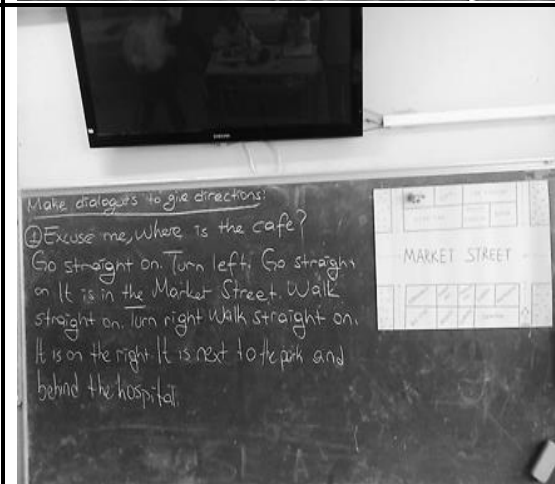 SAMSUNG
Make dialogues to give directions:
① Excuse me, where is the cafe?
Go straight on. Turn left. Go straight
on It is in the Market Street. Walk
straight on. Turn right Walk straight on.
It is on the right. It is next to the park and
behind the hospital.
MARKET STREET